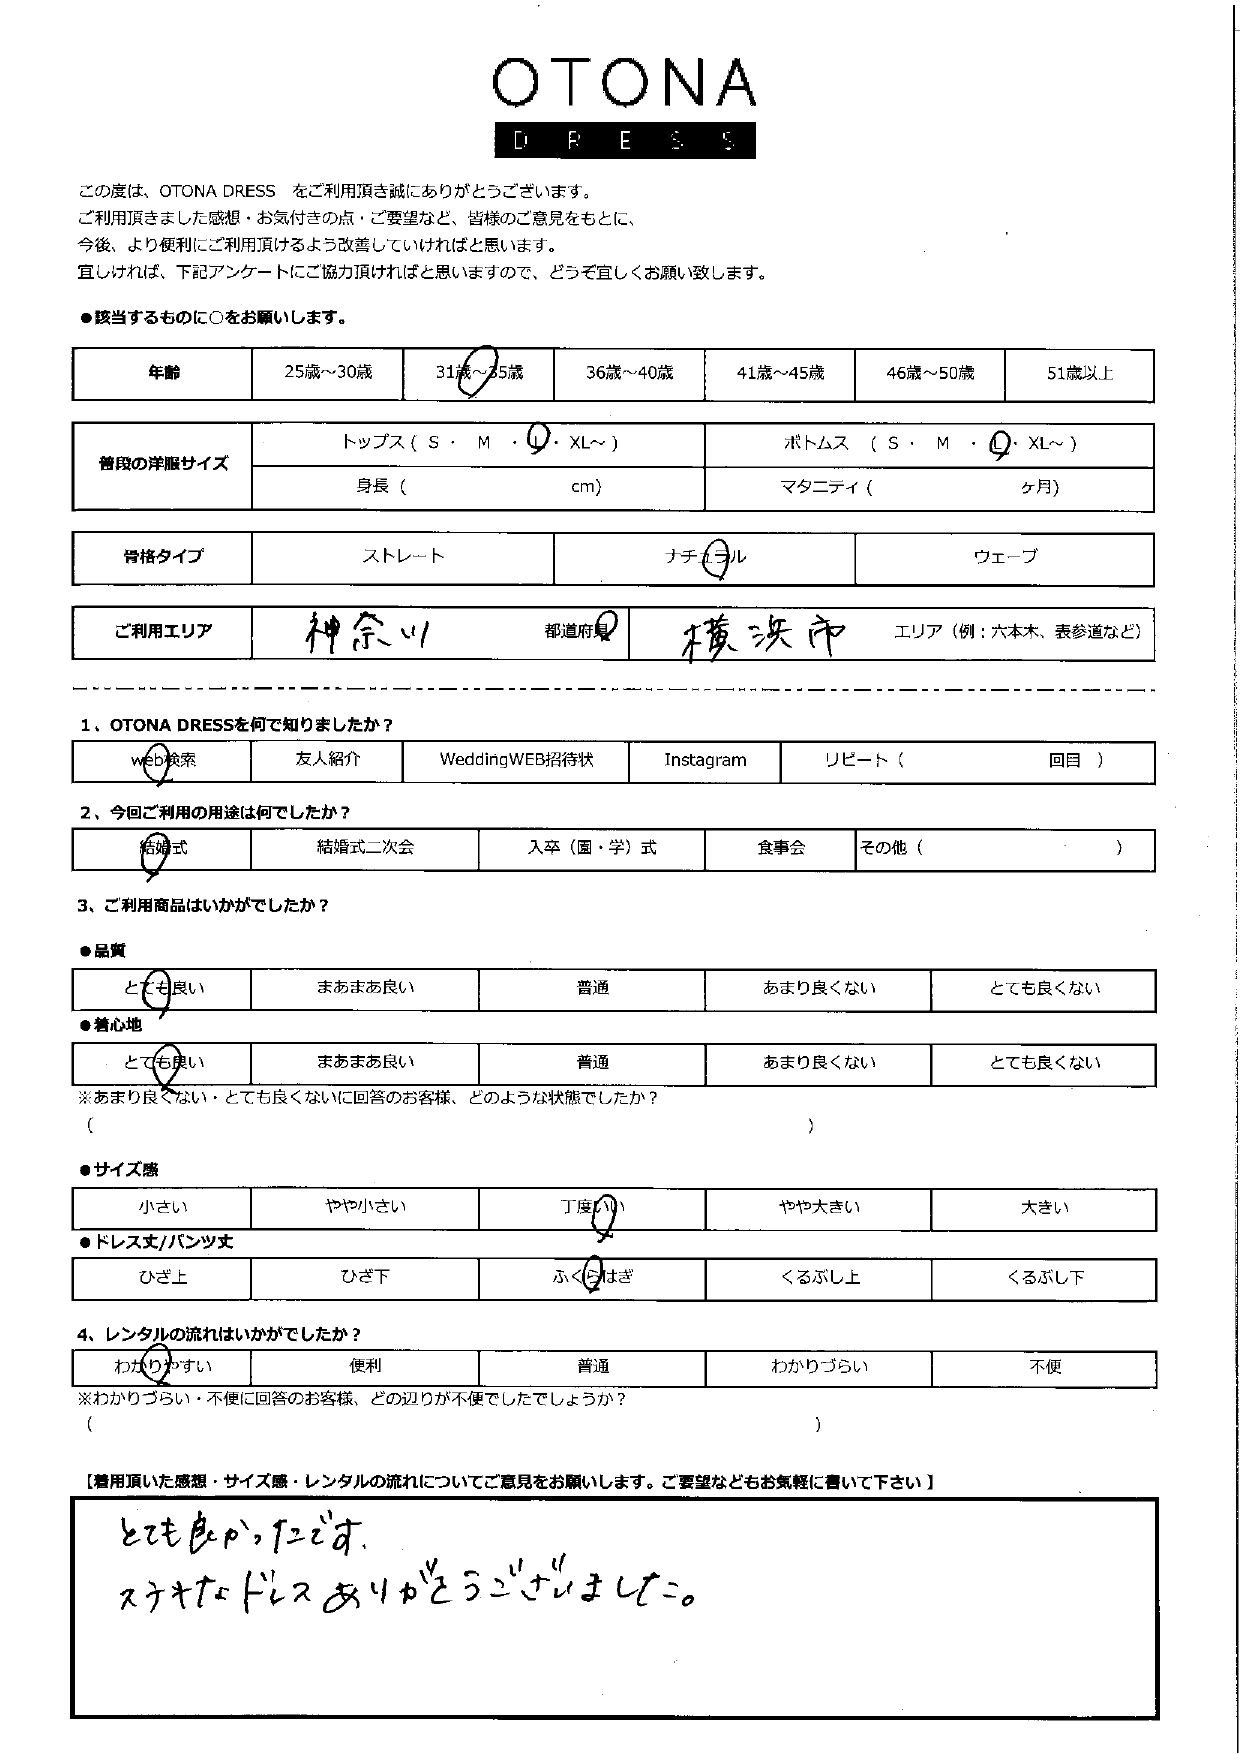 OTONA
DRESS
この度は、OTONA DRESS　をご利用頂き誠にありがとうございます。
ご利用頂きました感想・お気付きの点・ご要望など、皆様のご意見をもとに、
今後、より便利にご利用頂けるよう改善していければと思います。
宜しければ、下記アンケートにご協力頂ければと思いますので、どうぞ宜しくお願い致します。
●該当するものに○をお願いします。
年齢 25歳～30歳 31歳～35歳 36歳～40歳 41歳～45歳 46歳～50歳 51歳以上
普段の洋服サイズ トップス ( S ・ M ・ L ・ XL～ ) ボトムス ( S ・ M ・ L ・ XL～ )
身長 ( cm) マタニティ ( ヶ月)
骨格タイプ ストレート ナチュラル ウェーブ
ご利用エリア 神奈川 都道府県 横浜市 エリア（例：六本木、表参道など）
1、OTONA DRESSを何で知りましたか？
web検索 友人紹介 WeddingWEB招待状 Instagram リピート ( 回目 )
2、今回ご利用の用途は何でしたか？
結婚式 結婚式二次会 入卒（園・学）式 食事会 その他 ( )
3、ご利用商品はいかがでしたか？
●品質
とても良い まあまあ良い 普通 あまり良くない とても良くない
●着心地
とても良い まあまあ良い 普通 あまり良くない とても良くない
※あまり良くない・とても良くないに回答のお客様、どのような状態でしたか？
( )
●サイズ感
小さい やや小さい 丁度いい やや大きい 大きい
●ドレス丈/パンツ丈
ひざ上 ひざ下 ふくらはぎ くるぶし上 くるぶし下
4、レンタルの流れはいかがでしたか？
わかりやすい 便利 普通 わかりづらい 不便
※わかりづらい・不便に回答のお客様、どの辺りが不便でしたでしょうか？
( )
【着用頂いた感想・サイズ感・レンタルの流れについてご意見をお願いします。ご要望などもお気軽に書いて下さい】
とても良かったです.
ステキなドレスありがとうございました。